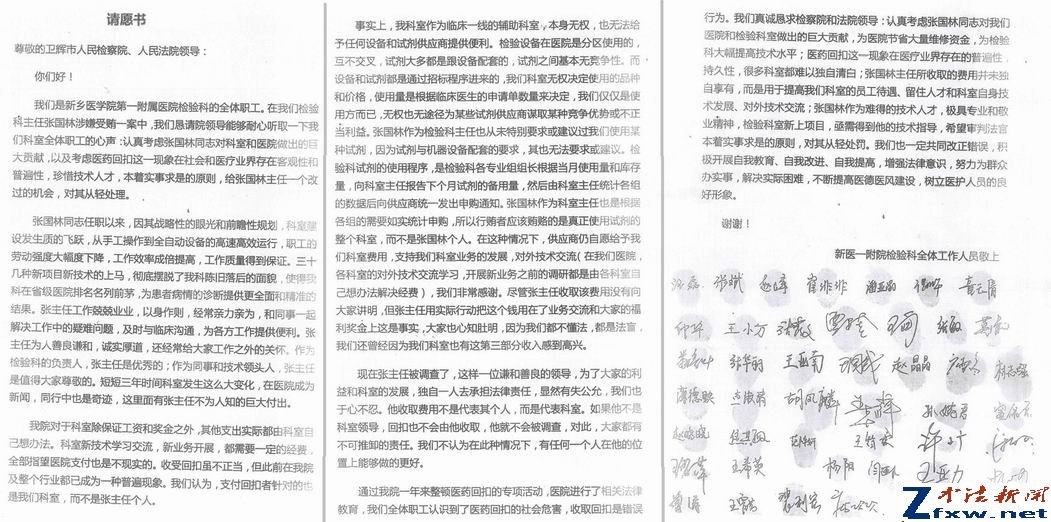 请愿书
尊敬的卫辉市人民检察院、人民法院领导：
你们好！
我们是新乡医学院第一附属医院检验科的全体职工。在我们检验
科主任张国林涉嫌受贿一案中，我们恳请院领导能够耐心听取一下我
们科室全体职工的心声：认真考虑张国林同志对科室和医院做出的巨
大贡献，以及考虑医药回扣这一现象在社会和医疗业界存在客观性和
普遍性，珍惜技术人才，本着实事求是的原则，给张国林主任一个改
过的机会，对其从轻处理。
张国林同志任职以来，因其战略性的眼光和前瞻性规划，科室建
设发生质的飞跃，从手工操作到全自动设备的高速高效运行，职工的
劳动强度大幅度下降，工作效率成倍提高，工作质量得到保证。三十
几种新项目新技术的上马，彻底摆脱了我科陈旧落后的面貌，使得我
科在省级医院排名名列前茅，为患者病情的诊断提供更全面和精准的
结果。张主任工作兢兢业业，以身作则，经常亲力亲为，和同事一起
解决工作中的疑难问题，及时与临床沟通，为各方工作提供便利。张
主任为人善良谦和，诚实厚道，还经常给大家工作之外的关怀。作为
检验科的负责人，张主任是优秀的；作为同事和技术领头人，张主任
是值得大家尊敬的。短短三年时间科室发生这么大变化，在医院成为
新闻，同行中也是奇迹，这里面有张主任不为人知的巨大付出。
我院对于科室除保证工资和奖金之外，其他支出实际都由科室自
己想办法。科室新技术学习交流，新业务开展，都需要一定的经费，
全部指望医院支付也是不现实的。收受回扣虽不正当，但此前在我院
及整个行业都已成为一种普遍现象。我们认为，支付回扣者针对的也
是我们科室，而不是张主任个人。
事实上，我科室作为临床一线的辅助科室，本身无权，也无法给
予任何设备和试剂供应商提供便利。检验设备在医院是分区使用的，
互不交叉，试剂大多都是跟设备配套的，试剂之间基本无竞争性。而
设备和试剂都是通过招标程序进来的，我们科室无权决定使用的品种
和价格，使用量是根据临床医生的申请单数量来决定，我们仅仅是使
用方而已，无权也无途径为某些试剂供应商谋取某种竞争优势或不正
当利益。张国林作为检验科主任也从未特别要求或建议过我们使用某
种试剂，因为试剂与机器设备配套的要求，其也无法要求或建议。检
验科试剂的使用程序，是检验科各专业组组长根据当月使用量和库存
量，向科室主任报告下个月试剂的备用量，然后由科室主任统计各组
的数据后向供应商统一发出申购通知。张国林作为科室主任也是根据
各组的需要如实统计申购，所以行贿者应该贿赂的是真正使用试剂的
整个科室，而不是张国林个人。在这种情况下，供应商仍自愿给予我
们科室费用，支持我们科室业务的发展，对外技术交流(在我们医院，
各科室的对外技术交流学习，开展新业务之前的调研都是由各科室自
己想办法解决经费)，我们非常感谢。尽管张主任收取该费用没有向
大家讲明，但张主任用实际行动把这个钱用在了业务交流和大家的福
利奖金上这是事实，大家也心知肚明，因为我们都不懂法，都是法盲，
我们还曾经因为我们科室也有这第三部分收入感到高兴。
现在张主任被调查了，这样一位谦和善良的领导，为了大家的利
益和科室的发展，独自一人去承担法律责任，显然有失公允，我们也
于心不忍。他收取费用不是代表其个人，而是代表科室。如果他不是
科室领导，回扣也不会由他收取，他就不会被调查，对此，大家都有
不可推卸的责任。我们不认为在此种情况下，有任何一个人在他的位
置上能够做的更好。
通过我院一年来整顿医药回扣的专项活动，医院进行了相关法律
教育，我们全体职工认识到了医药回扣的社会危害，收取回扣是错误
行为。我们真诚恳求检察院和法院领导：认真考虑张国林同志对我们
医院和检验科室做出的巨大贡献，为医院节省大量维修资金，为检验
科大幅提高技术水平；医药回扣这一现象在医疗业界存在的普遍性，
持久性，很多科室都难以独自清白；张国林主任所收取的费用并未独
自享有，而是用于提高我们科室的员工待遇、留住人才和科室自身技
术发展、对外技术交流；张国林作为难得的技术人才，极具专业和敬
业精神，检验科室新上项目，亟需得到他的技术指导，希望审判法官
本着实事求是的原则，对其从轻处罚。我们也一定共同改正错误，积
极开展自我教育、自我改进、自我提高，增强法律意识，努力为群众
办实事，解决实际困难，不断提高医德医风建设，树立医护人员的良
好形象。
谢谢！
新医一附院检验科全体工作人员敬上
张斌
王小万
张华丽
王西南
赵晶晶
胡凤麟
王希英
杨阳
王亚力
才法新闻
Zfxw.net